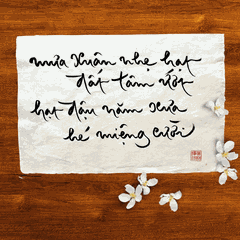 mưa xuân nhẹ hạt
đất tâm ướt
hạt đậu năm xưa
hé miệng cười